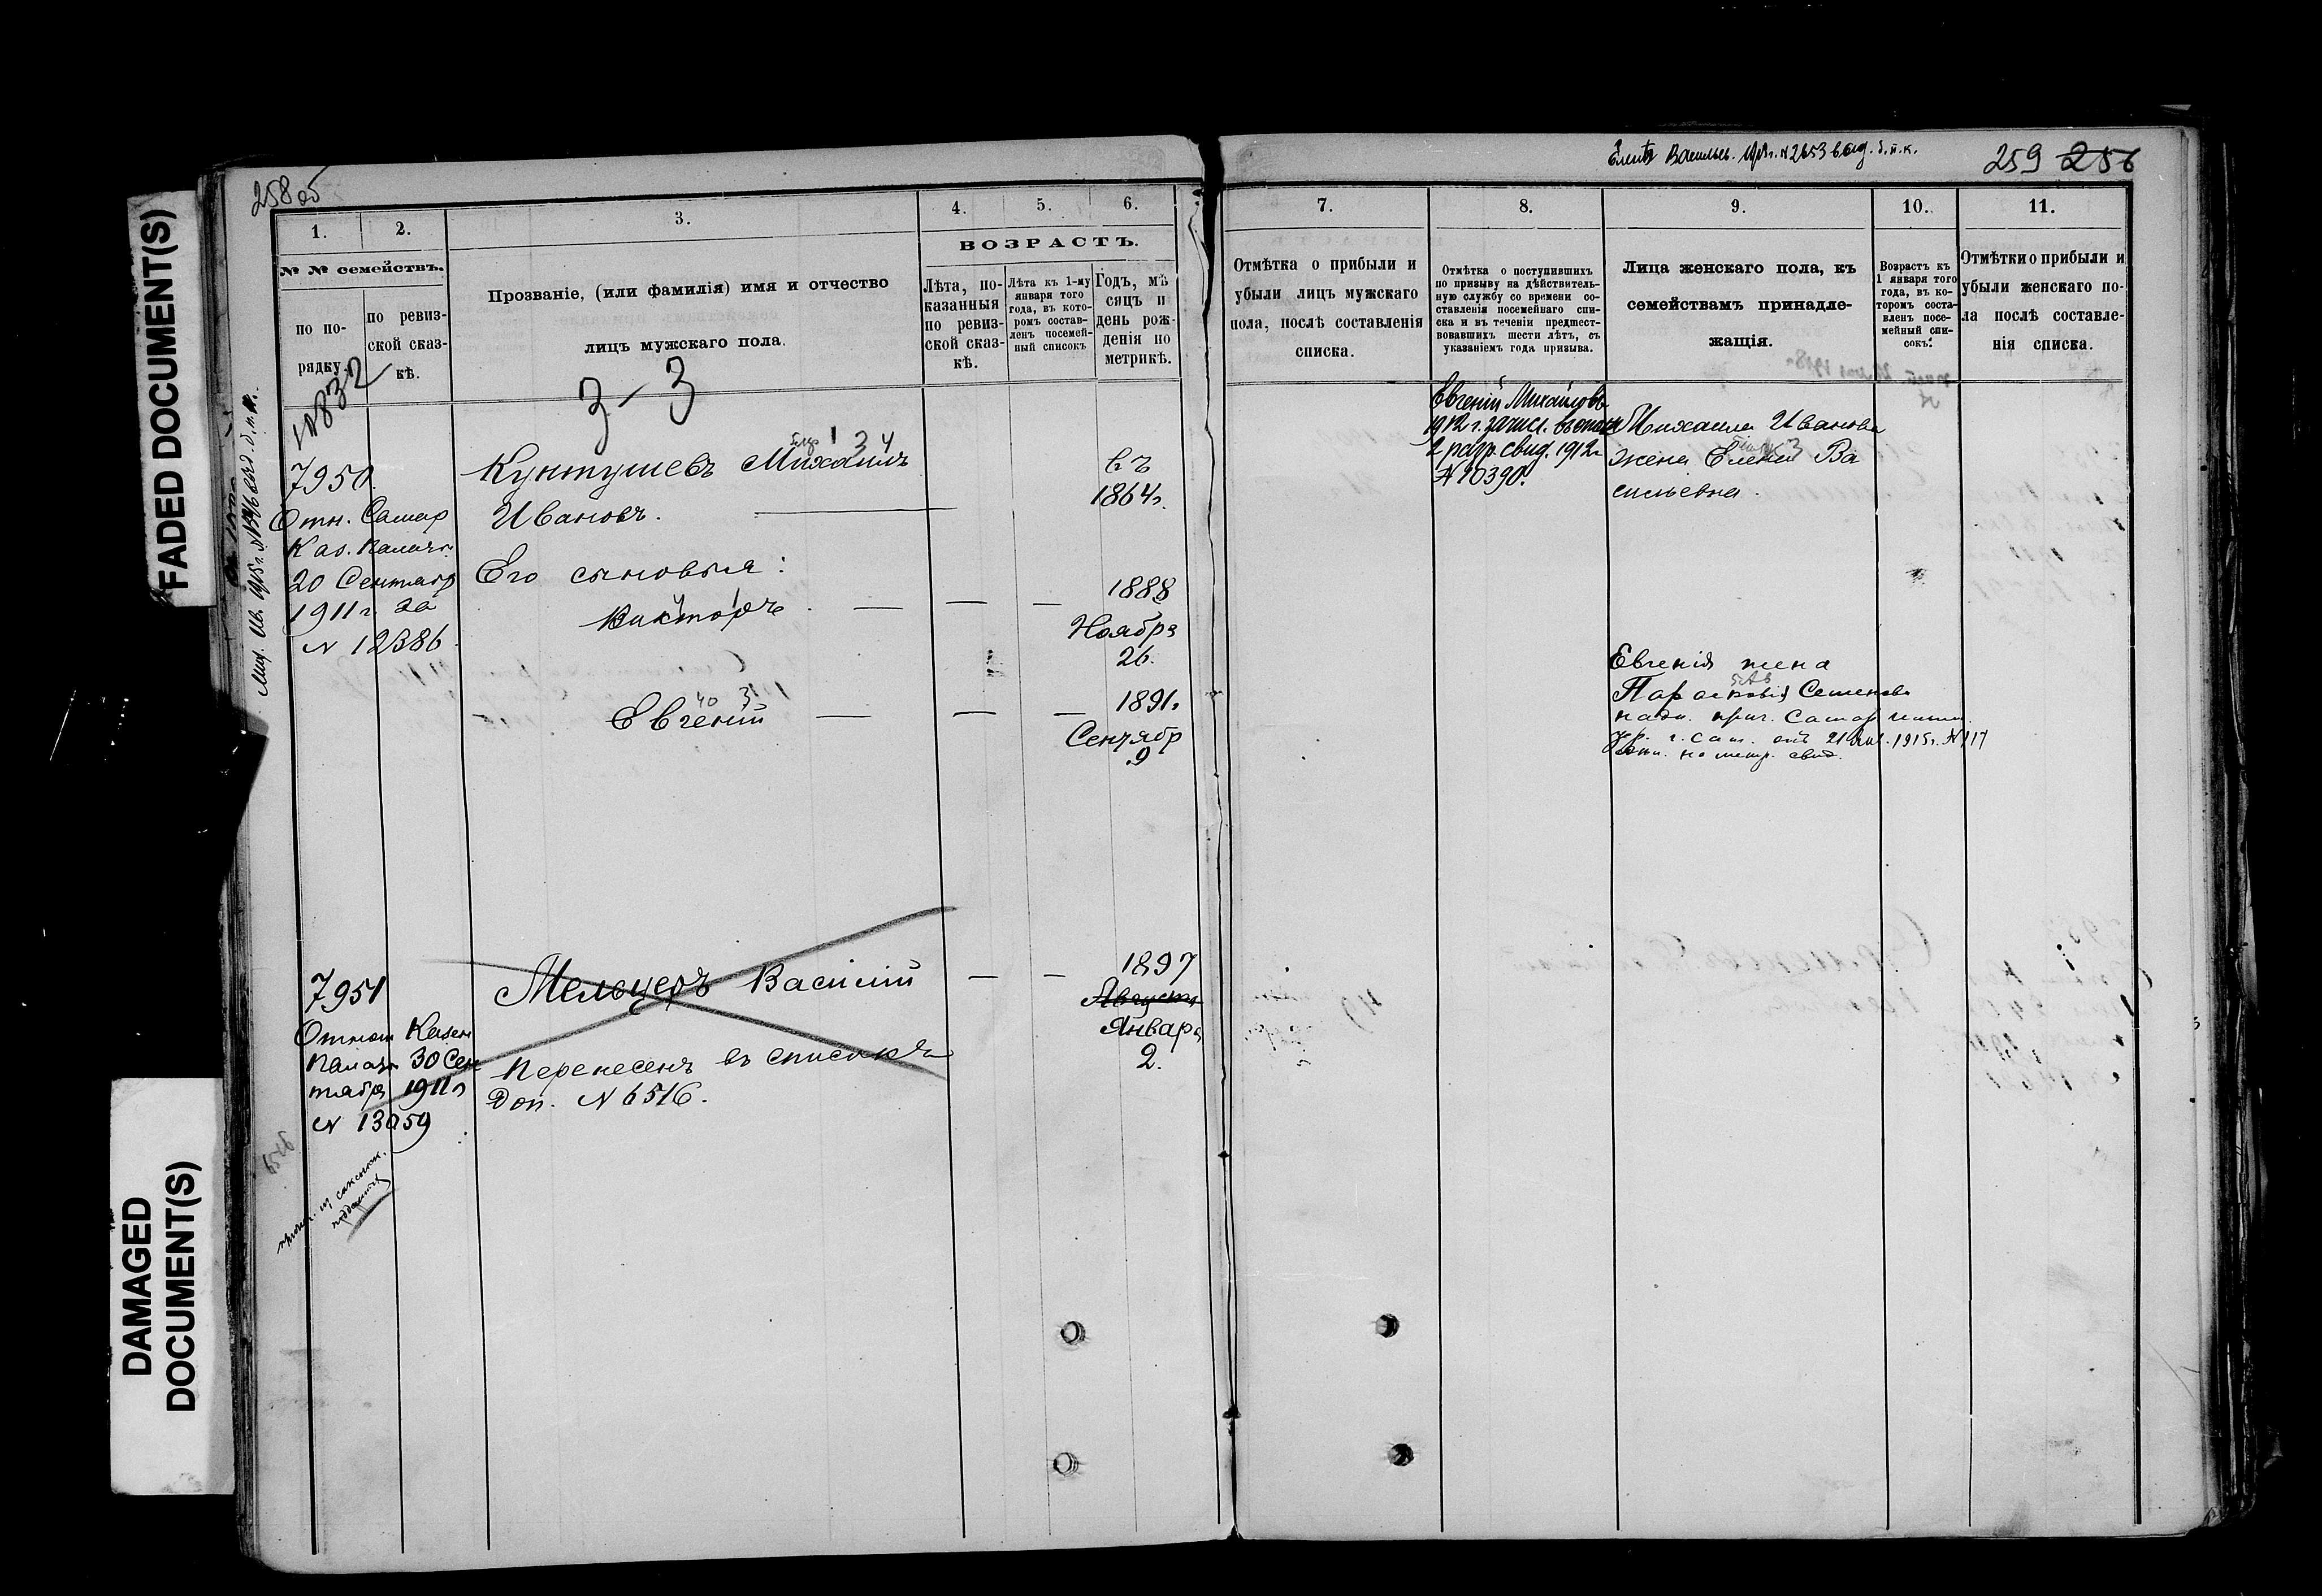 FADED DOCUMENT(S)
DAMAGED
DOCUMENT(S)
258 об
1.
2.
3.
4.
5.
6.
№ № семействъ.
по по-
рядку.
по ревиз-
ской сказ-
кѣ.
Прозваніе, (или фамилія) имя и отчество
лицъ мужскаго пола.
ВОЗРАСТЪ.
Лѣта, по-
казанныя
по ревиз-
ской сказ-
кѣ.
Лѣта къ 1-му
января того
года, въ кото-
ромъ состав-
ленъ посемей-
ный списокъ
Годъ, мѣ
сяцъ и
день рож-
денія по
метрикѣ.
N 832
3-3
7950
Отн. Самар
Каз. Палаты
20 Сентябр
1911 г. за
N 12386
1 3 4
Кунтушевъ Михаилъ
Ивановъ.
1864 г.
Его сыновья:
Викторъ
1888
Ноября
26.
Евгеній
1891 г.
Сентябр
9
7951
Относ Казен
Палаты 30 Сен
тября 1911 г
N 13059
Мельцеръ Василій
1897
Августа
Января
2.
Перенесенъ въ списокъ
Доп. N 6516.
6516
подданства
Елена Васильев. N 2653 б.п.к.
259 256
7.
8.
9.
10.
11.
Отмѣтка о прибыли и
убыли лицъ мужскаго
пола, послѣ составленія
списка.
Отмѣтка о поступившихъ
по призыву на дѣйствитель-
ную службу со времени со-
ставленія посемейнаго спи-
ска и въ теченіи предшест-
вовавшихъ шести лѣтъ, съ
указаніемъ года призыва.
Лица женскаго пола, къ
семействамъ принадле-
жащія.
Возрастъ къ
1 января того
года, въ ко-
торомъ соста-
вленъ посе-
мейный спи-
сокъ.
Отмѣтки о прибыли и
убыли женскаго по-
ла послѣ составле-
нія списка.
Евгеній Михайловъ
1912 г. зачисл.
2 разр. свид. 1912 г
N 10390.
Михаила Иванова
жена Елена Ва
сильевна.
Евгенія жена
Парасковія Семенова
1915 г. N 117
свид.